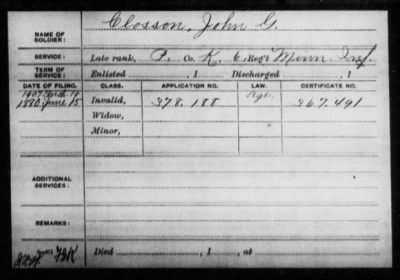 NAME OF SOLDIER: Closson, John G.
SERVICE: Late rank, P. Co. K, 6 Reg't Minn. Inf.
TERM OF SERVICE: Enlisted , 1 Discharged , 1
DATE OF FILING. CLASS. APPLICATION NO. LAW. CERTIFICATE NO.
1907 19 Age.
1880 June 15 Invalid, 378.188 367.491
Widow,
Minor,
ADDITIONAL SERVICES:
REMARKS:
Died , 1 , at